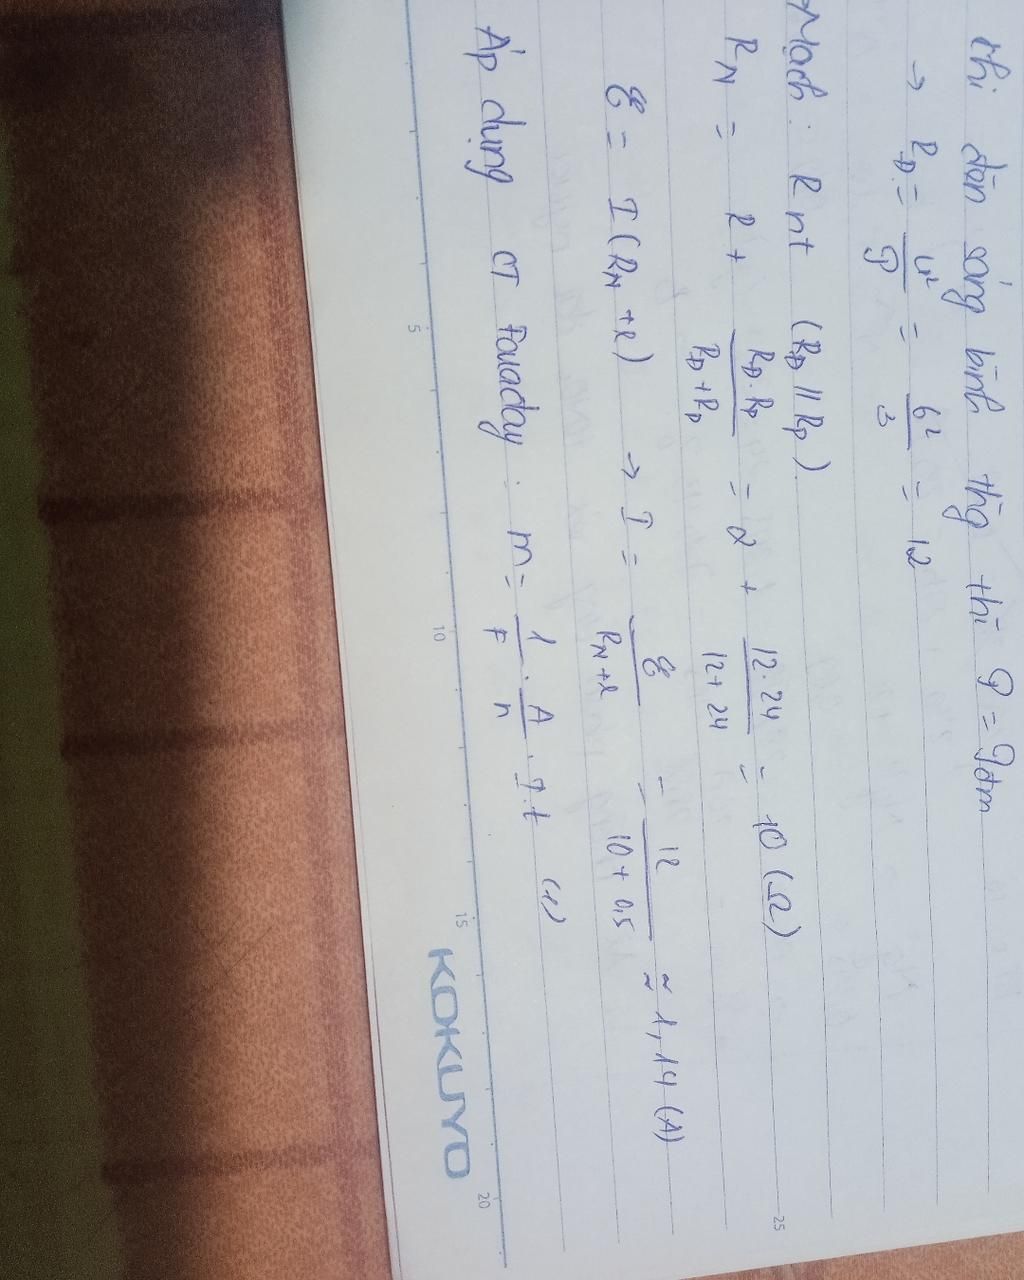 khi đèn sáng bình thg thì P = Pđm
→ RĐ = U²/P = 6²/3 = 12
Mạch: R nt (RĐ // Rp)
RN = R + RĐ.Rp/RĐ+Rp = 2 + 12.24/12+24 = 10 (Ω)
ℰ = I (RN + r) → I = ℰ/RN+r = 12/10+0,5 ≈ 1,14 (A)
Áp dụng CT Faraday: m = 1/F . A/n . I.t (1)
5 10 15 20
25
KOKUYO